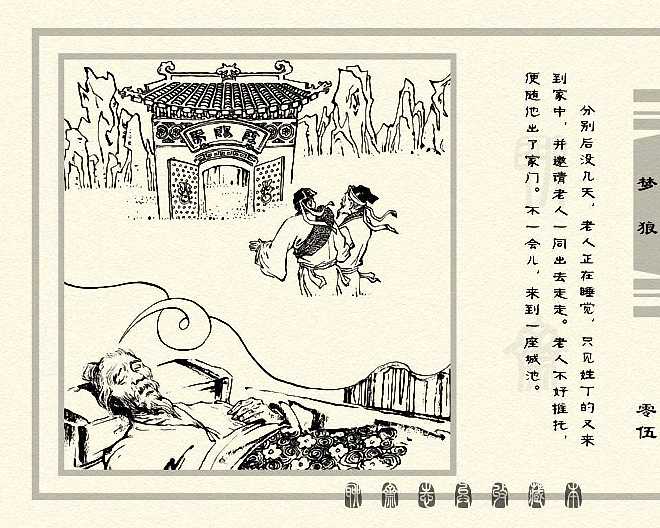 分别后没几天，老人正在睡觉，只见姓丁的又来
到家中，并邀请老人一同出去走走。老人不好推托，
便随他出了家门。不一会儿，来到一座城池。
梦狼
零伍